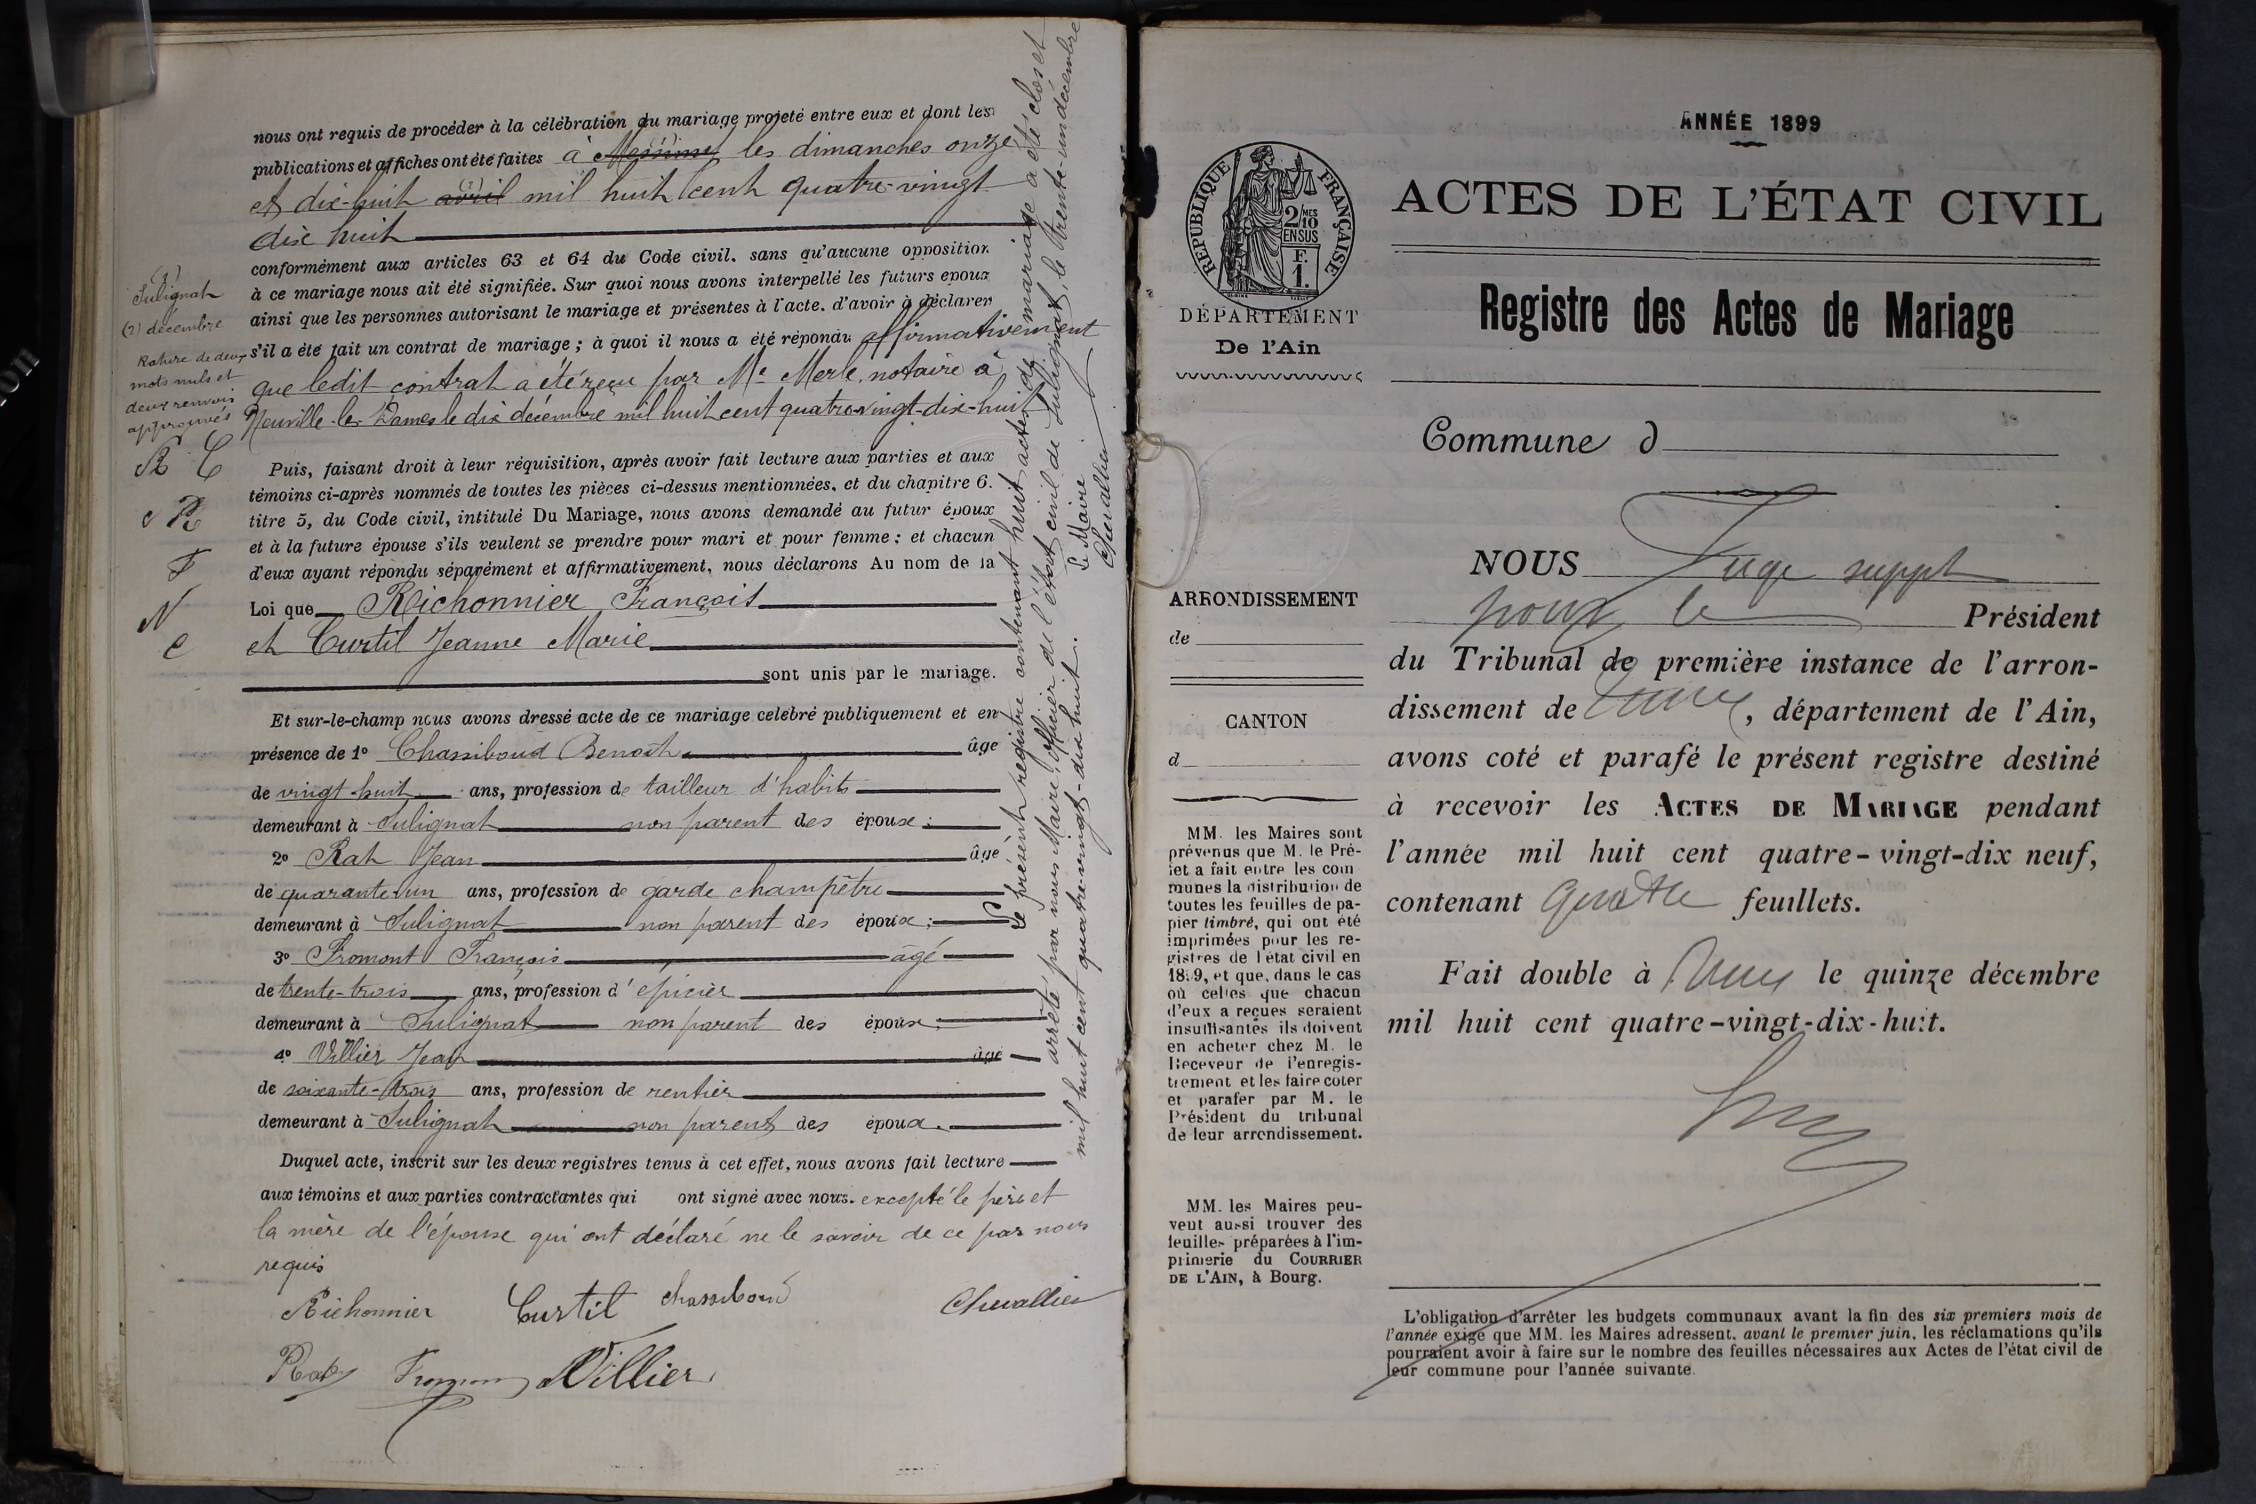 nous ont requis de procéder à la célébration du mariage projeté entre eux et dont les
publications et affiches ont été faites à Messimy (1) les dimanches onze
et dix-huit avril (2) mil huit cent quatre-vingt
dix huit
conformément aux articles 63 et 64 du Code civil. sans qu'aucune opposition
à ce mariage nous ait été signifiée. Sur quoi nous avons interpellé les futurs epoux
ainsi que les personnes autorisant le mariage et présentes à l'acte. d'avoir à déclarer
s'il a été fait un contrat de mariage ; à quoi il nous a été répondu affirmativement
que ledit contrat a été reçu par Me Merle, notaire à
Neuville-les-Dames le dix décembre mil huit cent quatre-vingt-dix-huit
(1)
Sulignat
(2) décembre
Rature de deux
mots nuls et
deux renvois
approuvés
R C
R
F
V
C
Puis, faisant droit à leur réquisition, après avoir fait lecture aux parties et aux
témoins ci-après nommés de toutes les pièces ci-dessus mentionnées, et du chapitre 6.
titre 5, du Code civil, intitulé Du Mariage, nous avons demandé au futur époux
et à la future épouse s'ils veulent se prendre pour mari et pour femme : et chacun
d'eux ayant répondu séparément et affirmativement, nous déclarons Au nom de la
Loi que Richonnier François
et Curtil Jeanne Marie
sont unis par le mariage.
Et sur-le-champ nous avons dressé acte de ce mariage celébré publiquement et en
présence de 1º Chassiboud Benoit âge
de vingt-huit ans, profession de tailleur d'habits
demeurant à Sulignat non parent des époux ;
2º Rat Jean âge
de quarante-un ans, profession de garde champêtre
demeurant à Sulignat non parent des époux ;
3º Fromont François âgé
de trente-trois ans, profession d'épicier
demeurant à Sulignat non parent des époux ;
4º Villier Jean âge
de soixante-trois ans, profession de rentier
demeurant à Sulignat non parent des époux.
Duquel acte, inscrit sur les deux registres tenus à cet effet, nous avons fait lecture
aux témoins et aux parties contractantes qui ont signé avec nous. excepté le père et
la mère de l'épouse qui ont déclaré ne le savoir de ce par nous
requis
Richonnier Curtil Chassiboud Chevallier
Rat Fromont Villier
Le présent registre contenant huit actes de mariage a été clos et
arrêté par nous Maire, officier de l'état civil de Sulignat, le trente-un décembre
mil huit cent quatre-vingt-dix huit.
Le Maire
Chevallier
ANNÉE 1899
ACTES DE L'ÉTAT CIVIL
Registre des Actes de Mariage
RÉPUBLIQUE FRANÇAISE
2/10 MES
EN SUS
F.
1.
DÉPARTEMENT
De l'Ain
Commune d
ARRONDISSEMENT
de
CANTON
d
MM. les Maires sont
prévenus que M. le Pré-
fet a fait entre les com
munes la distribution de
toutes les feuilles de pa-
pier timbré, qui ont été
imprimées pour les re-
gistres de l'état civil en
1899, et que, dans le cas
où celles que chacun
d'eux a reçues seraient
insuffisantes ils doivent
en acheter chez M. le
Receveur de l'enregis-
trement et les faire coter
et parafer par M. le
Président du tribunal
de leur arrondissement.
MM. les Maires peu-
vent aussi trouver des
feuilles préparées à l'im-
primerie du COURRIER
DE L'AIN, à Bourg.
NOUS Juge suppt
pour le Président
du Tribunal de première instance de l'arron-
dissement de , département de l'Ain,
avons coté et parafé le présent registre destiné
à recevoir les ACTES DE MARIAGE pendant
l'année mil huit cent quatre-vingt-dix neuf,
contenant quatre feuillets.
Fait double à le quinze décembre
mil huit cent quatre-vingt-dix-huit.
L'obligation d'arrêter les budgets communaux avant la fin des six premiers mois de
l'année exige que MM. les Maires adressent, avant le premier juin, les réclamations qu'ils
pourraient avoir à faire sur le nombre des feuilles nécessaires aux Actes de l'état civil de
leur commune pour l'année suivante.